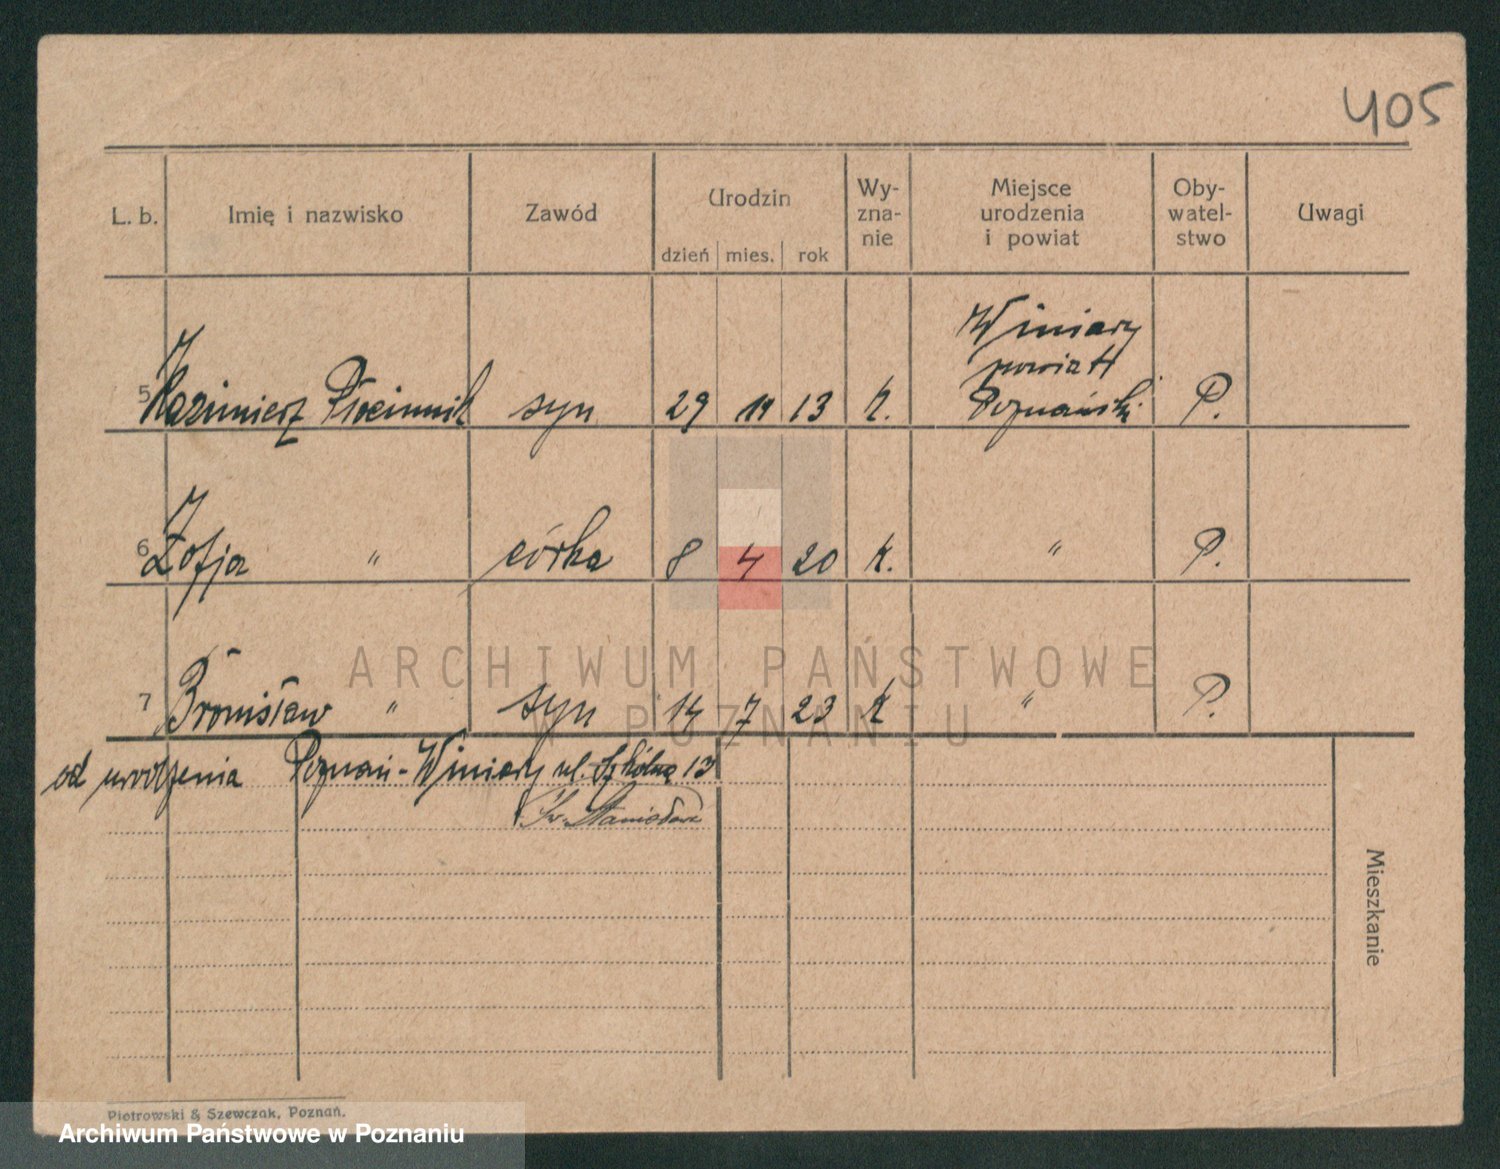 405
L. b. Imię i nazwisko Zawód Urodzin Wy-zna-nie Miejsce urodzenia i powiat Oby-watel-stwo Uwagi
dzień mies. rok
5 Kazimierz Płócinnik syn 29 11 13 k. Winiary powiat Poznański P.
6 Zofja " córka 8 4 20 k. " P.
7 Bronisław " syn 14 7 23 k " P.
od urodzenia Poznań-Winiary ul. Szkólna 13
Św. Stanisława
Mieszkanie
Piotrowski & Szewczak, Poznań.
ARCHIWUM PAŃSTWOWE
W POZNANIU
Archiwum Państwowe w Poznaniu